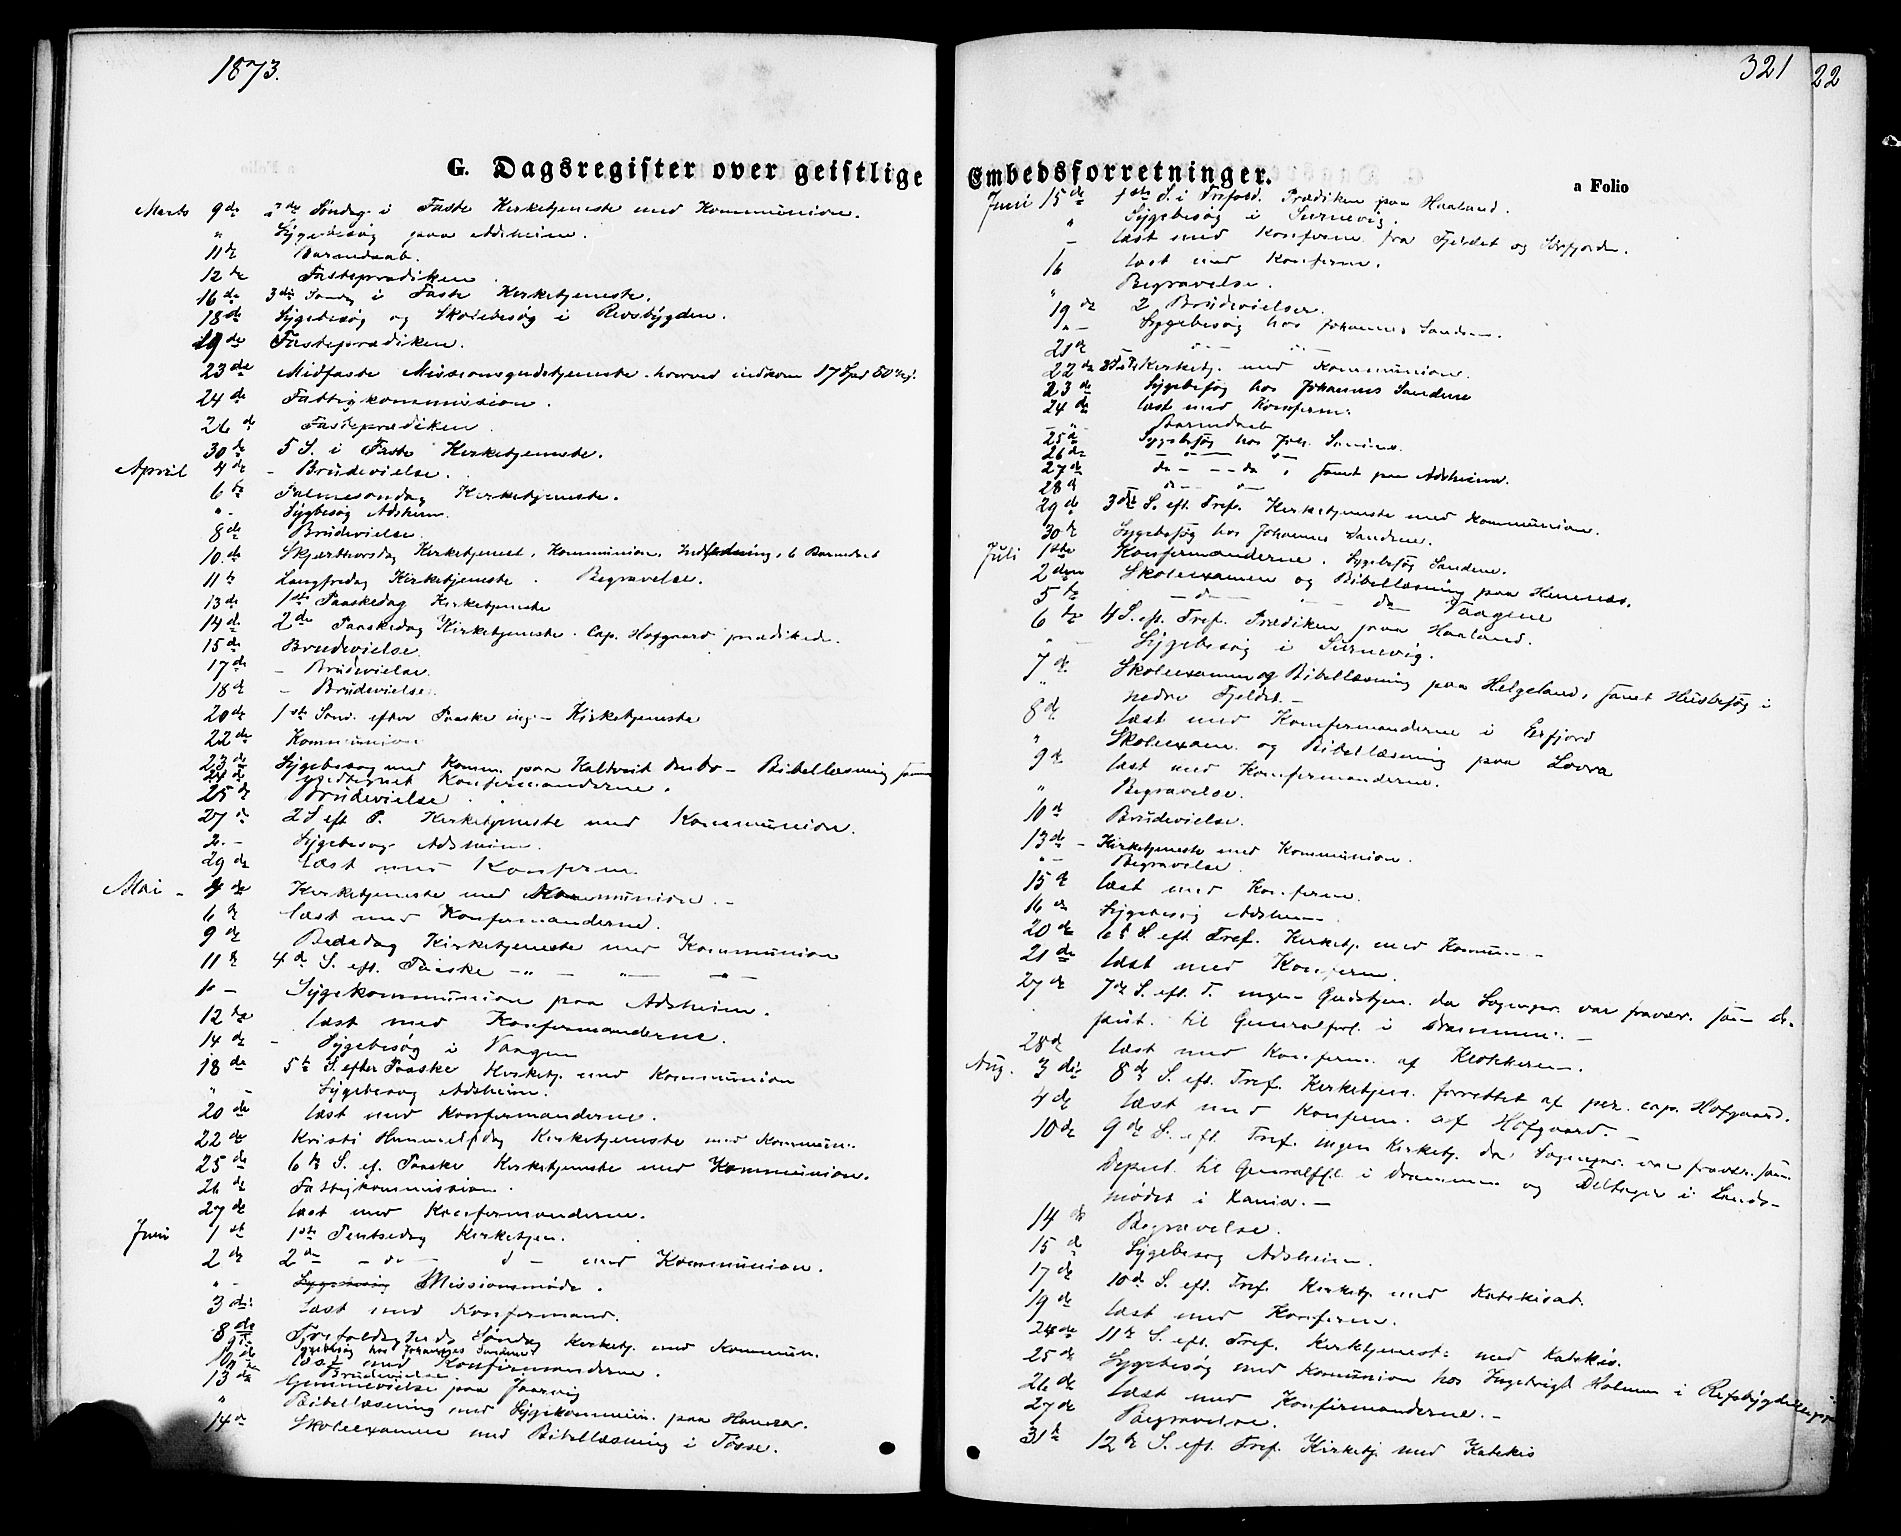 1873.
G. Dagsregister over geistlige
Marts 9de 2de Søndag i Faste Kirketjeneste med Kommunion.
" Sygebesøg paa Adsheim.
11te Barnedaab.
12te Fasteprædiken
16de 3die Søndag i Faste Kirketjeneste.
18de Sygebesøg og Skolebesøg i Revsbygden.
19de Fasteprædiken.
23de Midfaste Missionsgudstjeneste hvorved indkom 17 Spd 60
24de Fattigkommission.
26de Fasteprædiken
30te 5 S. i Faste Kirketjeneste.
April 4de - Brudevielse.
6te Palmesøndag Kirketjeneste.
" - Sygbesøg Adsheim.
8de Brudevielse
10de Skjærthorsdag Kirketjenest, Kommunion,
11te Langfredag Kirketjeneste. Begravelse.
13de 1ste Paaskedag Kirketjeneste
14de 2de Paaskedag Kirketjeneste. Cap. Hofgaard prædikede.
15de Brudevielse
17de - Brudevielse
18de - Brudevielse
20de 1ste Sønd. efter Paaske ing- Kirketjeneste
22de Kommunion
23de Sygebesøg med Komm. paa Kaltveit Ombo - Bibellæsning
24de Konfirmanderne.
25de Brudevielse
27de 2 S eft P. Kirketjeneste med Kommunion.
Sygebesøg Adsheim.
29de læst med Konfirm
Mai - 4de Kirketjeneste med Kommunion. -
6te læst med Konfirmanderne.
9de Bededag Kirketjeneste med Kommunion
11te 4de S. eft. Paaske - " - " - " -
Sygekommunion paa Adsheim.
12te læst med Konfirmanderne.
14de - Sygebesøg i Vaagen
18de 5te S. efter Paaske Kirketj. med Kommunion
" - Sygebesøg Adsheim.
20de læst med Konfirmanderne.
22de Kristi Himmelf.dag Kirketjeneste med Kommun.
25de 6te S. ef. Paaske Kirketjeneste med Kommunion.
26de Fattigkommission.
27de læst med Konfirmanderne.
Juni 1ste 1ste Pintsedag Kirketjen.
2de 2de - do - d - med Kommunion.
" - Sygebesøg Missionsmøde.
3die læst med Konfirmand.
8de Trefoldigheds Søndag Kirketj. med Kommun.
9de Sygebesøg hos Johannes Sandene
10de læst med Konfirmanderne.
Brudevielse.
13de paa Jaarvig
" Bibellæsning med Sygekommun. paa
14de Skoleexamen med Bibellæsning i Tøsse.
321 22
Embedsforretninger.
a Folio
Juni 15de 1ste S. i Trefold. Prædiken paa Haaland.
" Sygebesøg i Survevig.
- læst med Konfirm. fra Fjeldet og
16 læst med Konfirm.
" Begravelse.
19de 2 Brudevielser.
" - Sygebesøg hos Johannes Sanden.
21de " - " -
22de Kirketj. med Kommunion.
23de Sygebesøg hos Johannes Sandene
24de læst med Konfirm:
- " - Barnedaab
25de Sygebesøg hos Joh. Sandene.
26de - " - " -
27de do - - do, samt paa Adsheim.
28de - " - " -
29de 3die S. eft. Tref. Kirketjeneste med Kommunion.
30te Sygebesøg hos Johannes Sandene.
Juli 1ste Konfirmanderne. Sygebesøg Sandene.
2den Skoleexamen og Bibellæsning paa
5te - do - do - Vaagene
6te 4 S. ef. Tref. Prædiken paa Haaland.
" Sygebesøg i Survevig.
7de Skoleexamen og Bibellæsning paa Helgeland, samt Husbesøg i
" nedre Fjeldet -
8de læst med Konfirmanderne i Erfjord
" Skoleexam. og Bibellæsning paa Lovra
9de læst med Konfirmanderne.
" Begravelse.
10de Brudevielse.
13de - Kirketjeneste med Kommunion.
" - Begravelse
15de læst med Konfirm.
16de Sygebesøg Adsheim.
20de 6te S. eft. Tref. Kirketj. med Kommun. -
21de læst med Konfirm.
27de 7de S. eft. T. ingen Gudstjen. da Sognepr. var fravær. som De-
put. til Generalforl. i Drammen. -
28de læst med Konfirm. af Klokkeren.
Aug. 3die 8de S. eft. Tref. Kirketjen. forrettet af per. cap. Hofgaard.
4de læst med Konfirm. af Hofgaard. -
10de 9de S. eft. Tref. ingen Kirketj. da Sognepr. var fravær. som
Deput. til Generalffl. i Drammen og Deltager i Lands-
mødet i Xania. -
14de Begravelse.
15de Sygebesøg Adsheim.
17de 10de S. eft. Tref. Kirketj. med Katekisat.
19de læst med Konfirm.
24de 11te S. eft. Tref. Kirketjenest. med Katekis.
25de Sygebesøg med Komunion hos Ingebrigt Holmen i
26de læst med Konfirmanderne. -
27de Begravelse.
31te 12te S. eft. Tref. Kirketj. med Katekis